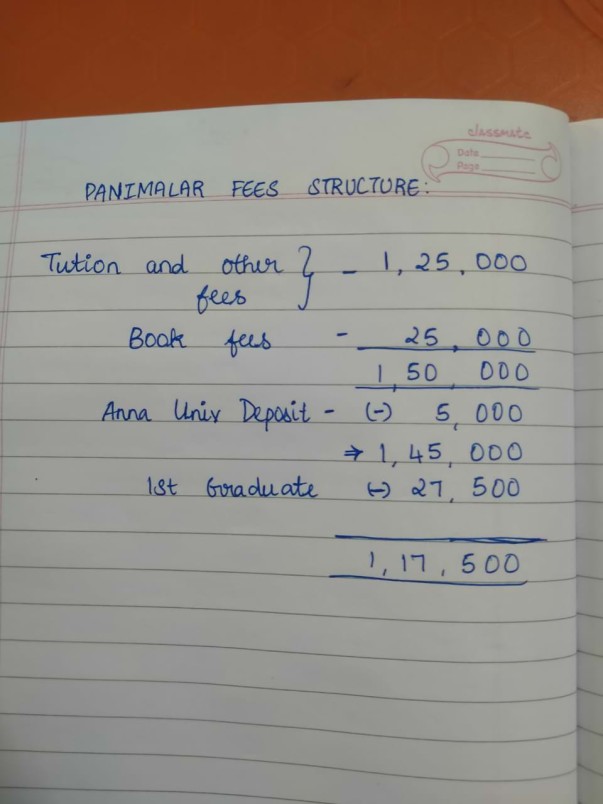 classmate
Date
Page
PANIMALAR FEES STRUCTURE:
Tution and other } - 1,25,000
fees
Book fees - 25,000
1,50,000
Anna Univ Deposit - (-) 5,000
⇒ 1,45,000
1st Graduate (-) 27,500
1,17,500